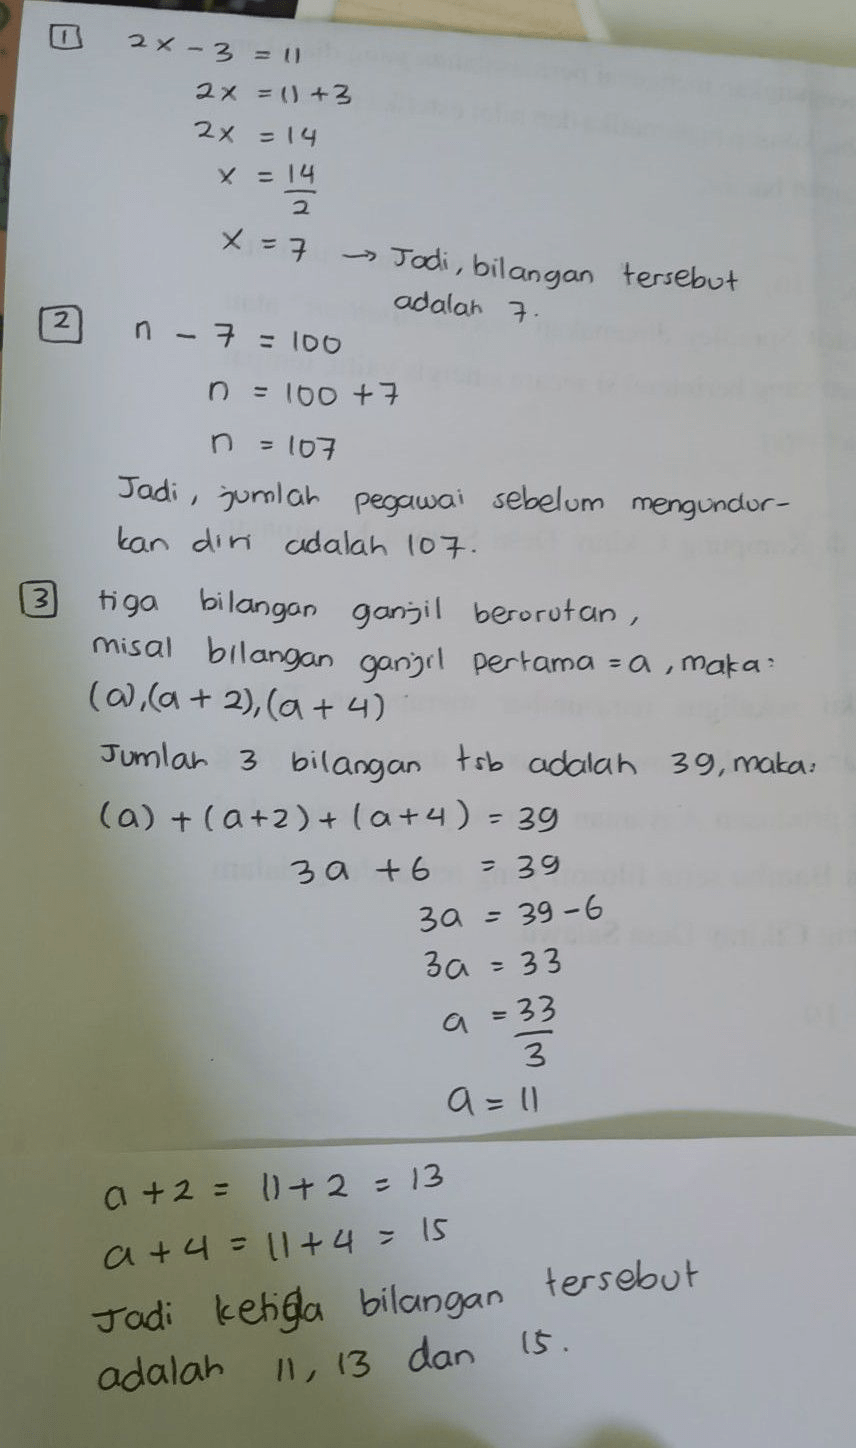 1 2x - 3 = 11
2x = 11 + 3
2x = 14
x = 14/2
x = 7 → Jadi, bilangan tersebut
adalah 7.
2 n - 7 = 100
n = 100 + 7
n = 107
Jadi, jumlah pegawai sebelum mengundur-
kan diri adalah 107.
3 tiga bilangan ganjil berurutan,
misal bilangan ganjil pertama = a, maka:
(a),(a + 2),(a + 4)
Jumlah 3 bilangan tsb adalah 39, maka:
(a) + (a+2) + (a+4) = 39
3a + 6 = 39
3a = 39 - 6
3a = 33
a = 33/3
a = 11
a + 2 = 11 + 2 = 13
a + 4 = 11 + 4 = 15
Jadi ketiga bilangan tersebut
adalah 11, 13 dan 15.